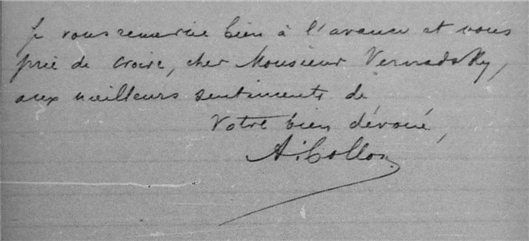 Je vous remercie bien à l'avance et vous
prie de croire, cher Monsieur Vernadsky,
aux meilleurs sentiments de
Votre bien dévoué,
A. Collon